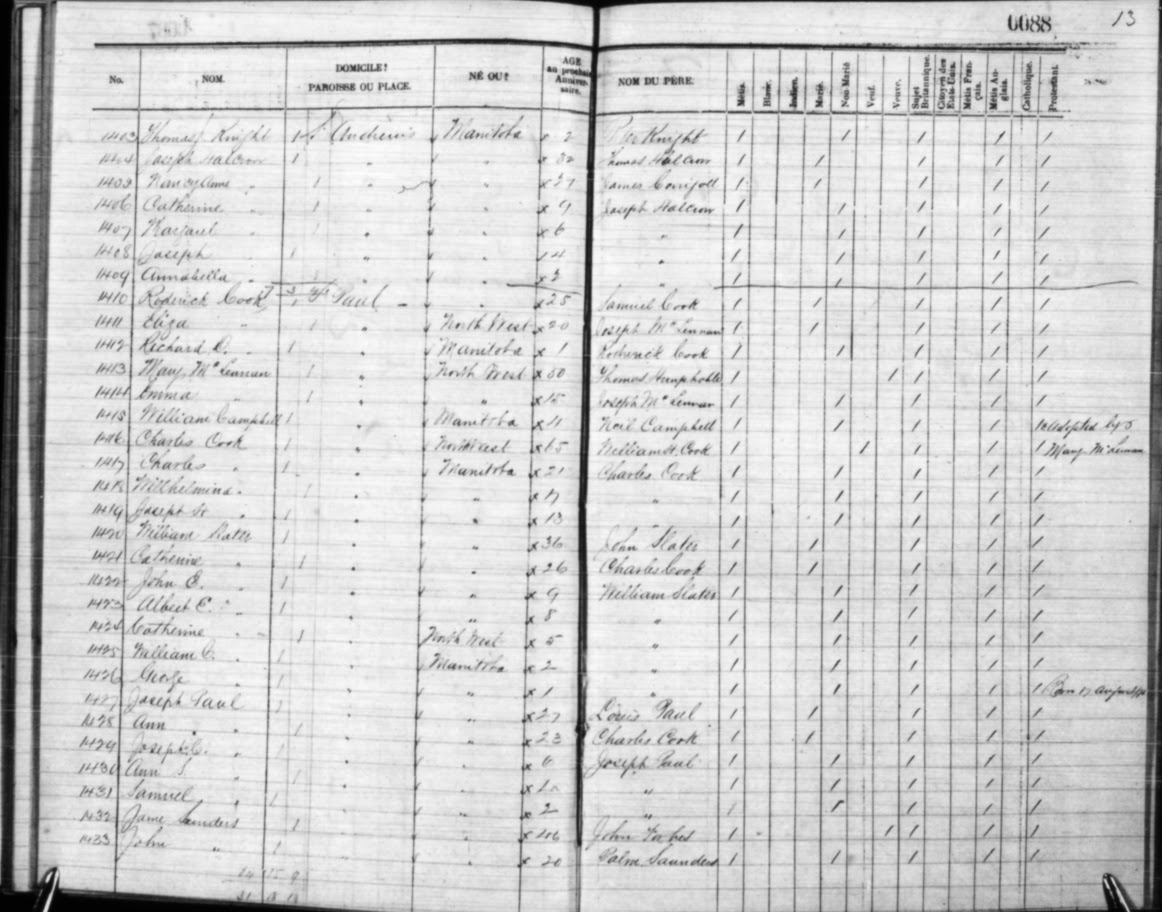 0088 13
No. NOM. DOMICILE? PAROISSE OU PLACE. NÉ OU? AGE au prochain Anniversaire. NOM DU PÈRE. Métis. Blanc. Indien. Marié. Non-Marié Veuf. Veuve. Sujet Britannique. Citoyen des Etats-Unis. Métis Français. Métis Anglais. Catholique. Protestant.
1403 Thomas Knight 1 St Andrews Manitoba x 2 Knight 1 1 1 1 1
1404 Joseph Halcrow 1 " " x 32 Thomas Halcrow 1 1 1 1 1
1405 Nancy Anne " 1 " " x 27 James 1 1 1 1 1
1406 Catherine " 1 " " x 9 Joseph Halcrow 1 1 1 1 1
1407 Margaret " 1 " " x 6 " 1 1 1 1 1
1408 Joseph " 1 " " " 1 1 1 1 1
1409 Annabella " 1 " " x 2 " 1 1 1 1 1
1410 Roderick Cook 1 St Paul " x 25 Samuel Cook 1 1 1 1 1
1411 Eliza " 1 " North West x 20 Joseph McLennan 1 1 1 1 1
1412 Richard C. " 1 " Manitoba x 1 Roderick Cook 1 1 1 1 1
1413 Mary McLennan 1 " North West x 50 Thomas 1 1 1 1 1
1414 Emma " 1 " " x 15 Joseph McLennan 1 1 1 1 1
1415 William Campbell 1 " Manitoba x 11 Neil Campbell 1 1 1 1 1 adopted by
1416 Charles Cook 1 " North West x 65 William H. Cook 1 1 1 1 1 Mary McLennan
1417 Charles " 1 " Manitoba x 21 Charles Cook 1 1 1 1 1
1418 Wilhelmina " 1 " " x 17 " 1 1 1 1 1
1419 Joseph " 1 " " x 13 " 1 1 1 1 1
1420 William Slater 1 " " x 36 John Slater 1 1 1 1 1
1421 Catherine " 1 " " x 26 Charles Cook 1 1 1 1 1
1422 John E. " 1 " " x 9 William Slater 1 1 1 1 1
1423 Albert E. " 1 " " x 8 " 1 1 1 1 1
1424 Catherine " 1 " North West x 5 " 1 1 1 1 1
1425 William C. " 1 " Manitoba x 2 " 1 1 1 1 1
1426 George " 1 " " x 1 " 1 1 1 1 1 Born 17 August
1427 Joseph Paul 1 " " x 27 Louis Paul 1 1 1 1 1
1428 Ann " 1 " " x 23 Charles Cook 1 1 1 1 1
1429 Joseph C. " 1 " " x 6 Joseph Paul 1 1 1 1 1
1430 Ann S. " 1 " " " 1 1 1 1 1
1431 Samuel " 1 " " x 2 " 1 1 1 1 1
1432 Jane Saunders 1 " " x 46 John Forbes 1 1 1 1 1
1433 John " 1 " " x 20 Palm Saunders 1 1 1 1 1